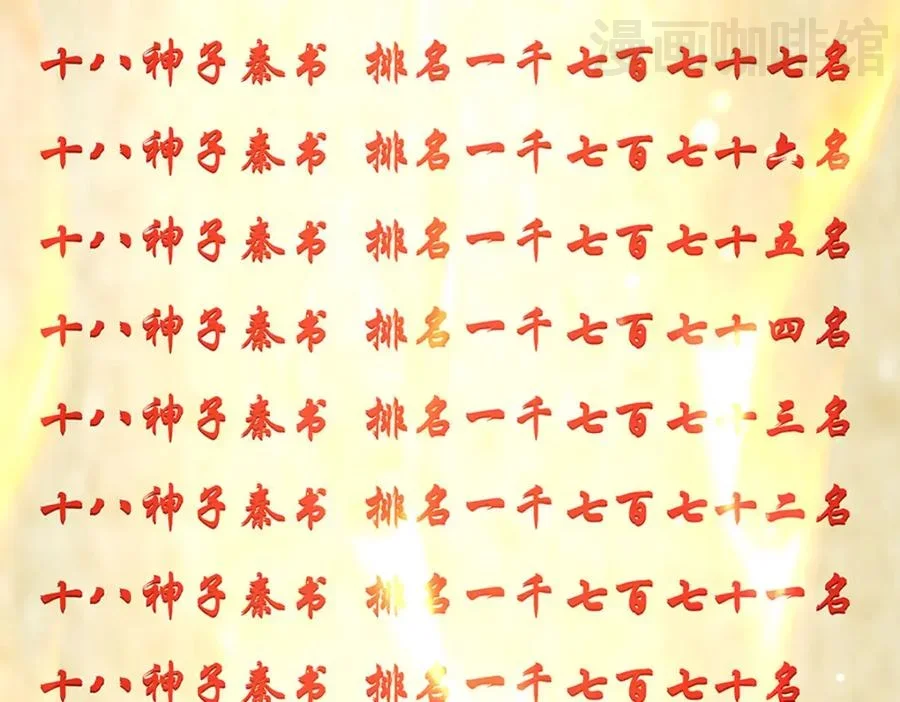 漫画咖啡馆
十八神子秦书 排名一千七百七十七名
十八神子秦书 排名一千七百七十六名
十八神子秦书 排名一千七百七十五名
十八神子秦书 排名一千七百七十四名
十八神子秦书 排名一千七百七十三名
十八神子秦书 排名一千七百七十二名
十八神子秦书 排名一千七百七十一名
十八神子秦书 排名一千七百七十名